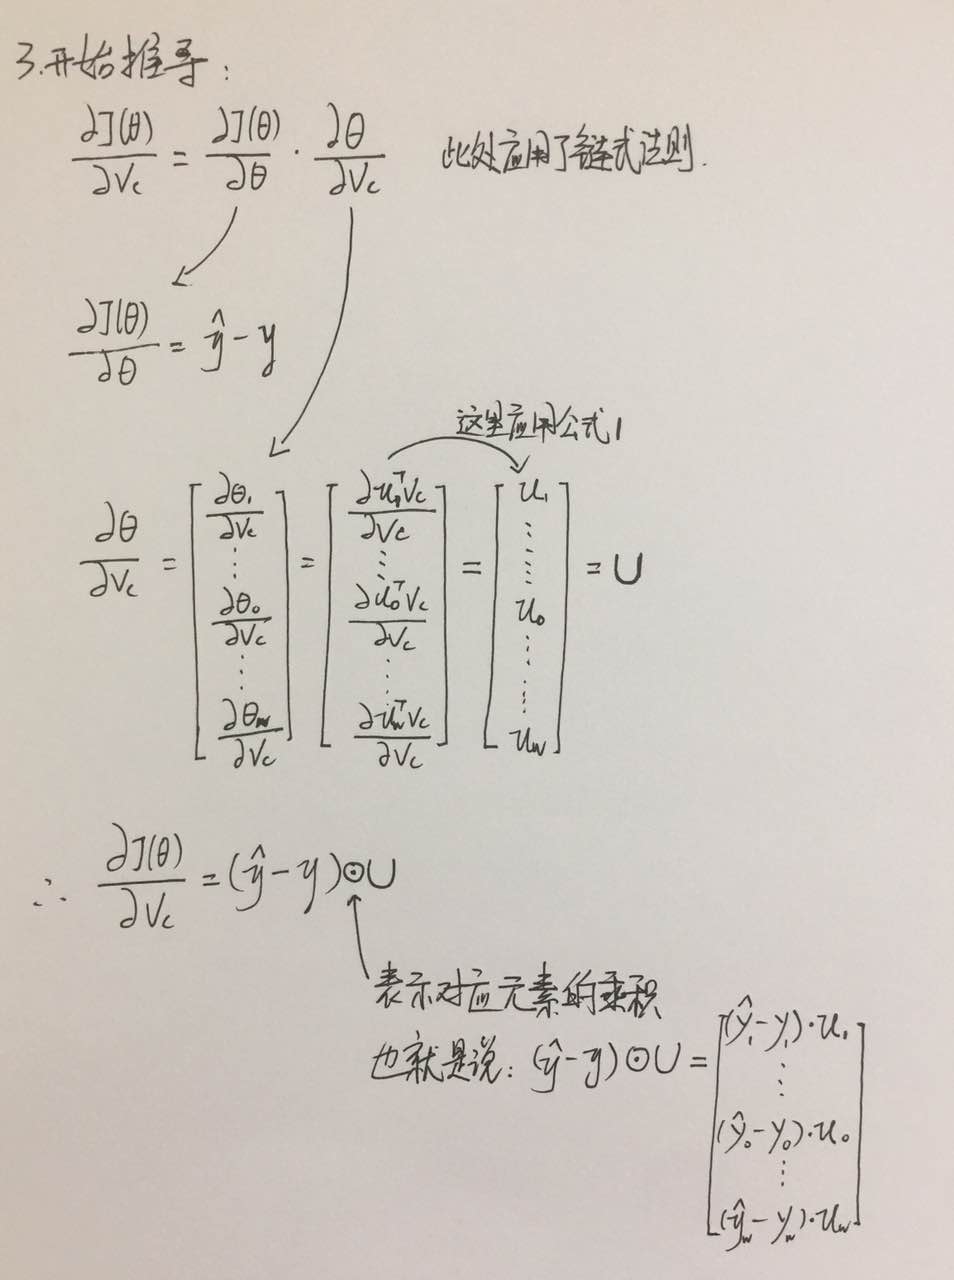 3.开始推导：
∂J(θ)/∂Vc = ∂J(θ)/∂θ · ∂θ/∂Vc 此处应用了链式法则.
∂J(θ)/∂θ = ŷ - y
这里应用公式1
∂θ/∂Vc = [∂θ₁/∂Vc ⋮ ∂θₒ/∂Vc ⋮ ∂θw/∂Vc] = [∂u₁ᵀVc/∂Vc ⋮ ∂uₒᵀVc/∂Vc ⋮ ∂uwᵀVc/∂Vc] = [u₁ ⋮ uₒ ⋮ uw] = U
∴ ∂J(θ)/∂Vc = (ŷ - y)⊙U
表示对应元素的乘积
也就是说：(ŷ - y)⊙U = [(ŷ₁ - y₁)·u₁ ⋮ (ŷₒ - yₒ)·uₒ ⋮ (ŷw - yw)·uw]